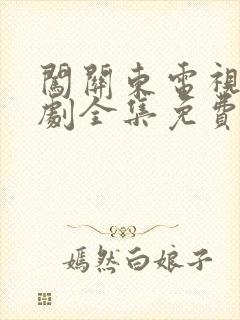 闖關東電視
劇全集免費
嫣然白娘子